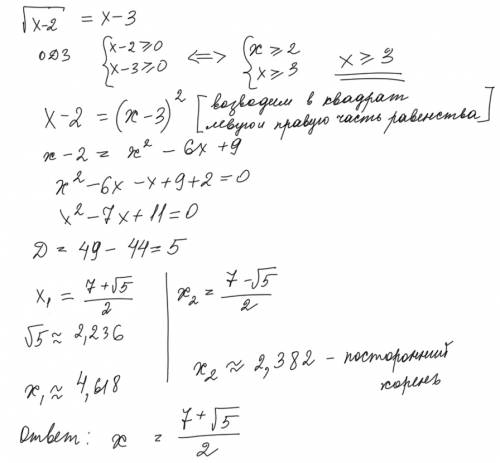 √x-2 = x-3
ОДЗ { x-2≥0 x-3≥0 ⟺ { x≥2 x≥3 x≥3
x-2 = (x-3)² [возводим в квадрат левую и правую часть равенства]
x-2 = x² - 6x +9
x²-6x -x+9+2=0
x²-7x+11=0
D= 49- 44=5
x₁ = (7+√5)/2
√5 ≈ 2,236
x₁ ≈ 4,618
x₂ = (7-√5)/2
x₂ ≈ 2,382 - посторонний
корень
Ответ: x = (7+√5)/2